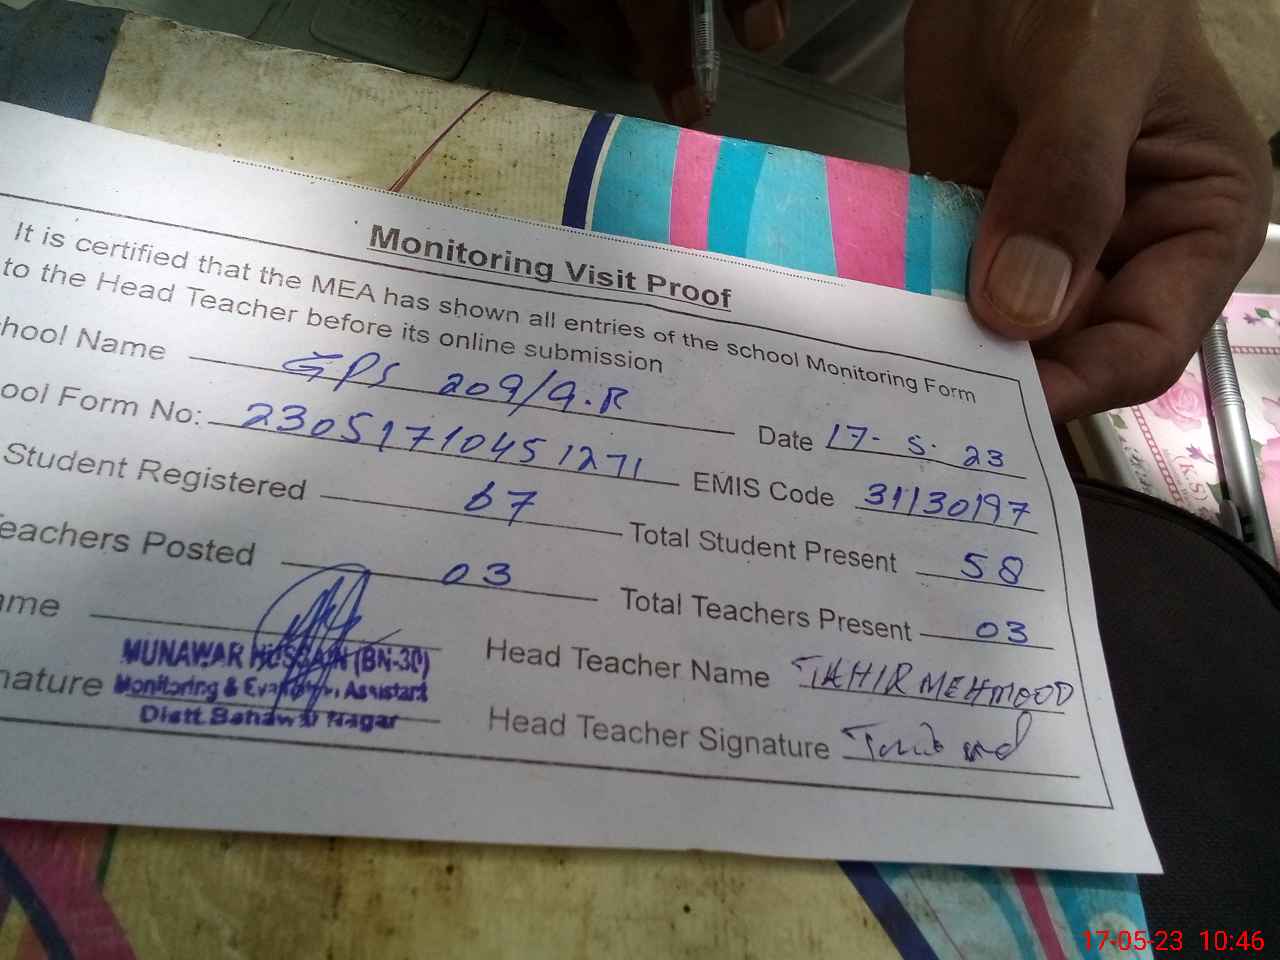 Monitoring Visit Proof
It is certified that the MEA has shown all entries of the school Monitoring Form
to the Head Teacher before its online submission
hool Name GPS 209/9.R Date 17-5.23
ool Form No: 23051710451271 EMIS Code 31130197
Student Registered 67 Total Student Present 58
eachers Posted 03 Total Teachers Present 03
ame Head Teacher Name TAHIR MEHMOOD
MUNAWAR HUSSAIN (BN-30)
nature Monitoring & Evaluation Assistant
Distt. Bahawal Nagar
Head Teacher Signature
17-05-23 10:46